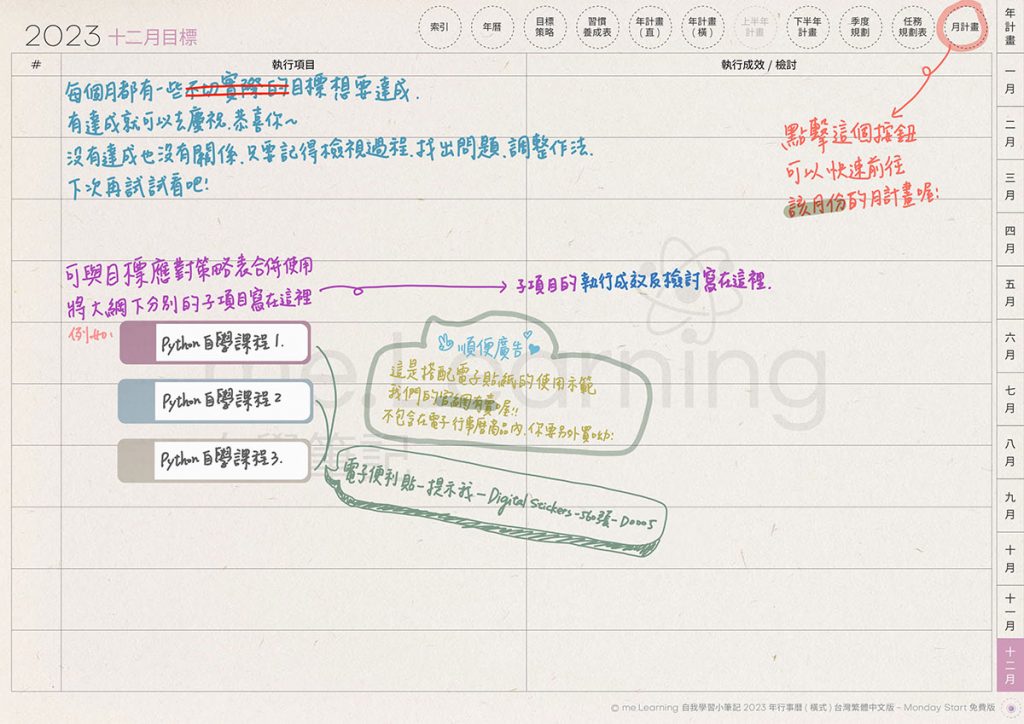 2023 十二月目標
索引
年曆
目標
策略
習慣
養成表
年計畫
(直)
年計畫
(橫)
上半年
計畫
下半年
計畫
季度
規劃
任務
規劃表
月計畫
年計畫
一月
二月
三月
四月
五月
六月
七月
八月
九月
十月
十一月
十二月
#
執行項目
執行成效 / 檢討
每個月都有一些不切實際的目標想要達成.
有達成就可以去慶祝.恭喜你~
沒有達成也沒有關係.只要記得檢視過程.找出問題.調整作法.
下次再試試看吧!
點擊這個按鈕
可以快速前往
該月份的月計畫喔!
可與目標應對策略表合併使用
將大綱下分別的子項目寫在這裡
子項目的執行成效及檢討寫在這裡.
例如:
Python自學課程1.
Python自學課程2
Python自學課程3.
順便廣告
這是搭配電子貼紙的使用示範
我們的官網有賣喔!!
不包含在電子行事曆商品內.你要另外買呦!
電子便利貼-提示我-Digital Stickers-560張-D0005
me.Learning
自學筆記
© me.Learning 自我學習小筆記 2023 年行事曆 ( 橫式 ) 台灣繁體中文版 - Monday Start 免費版